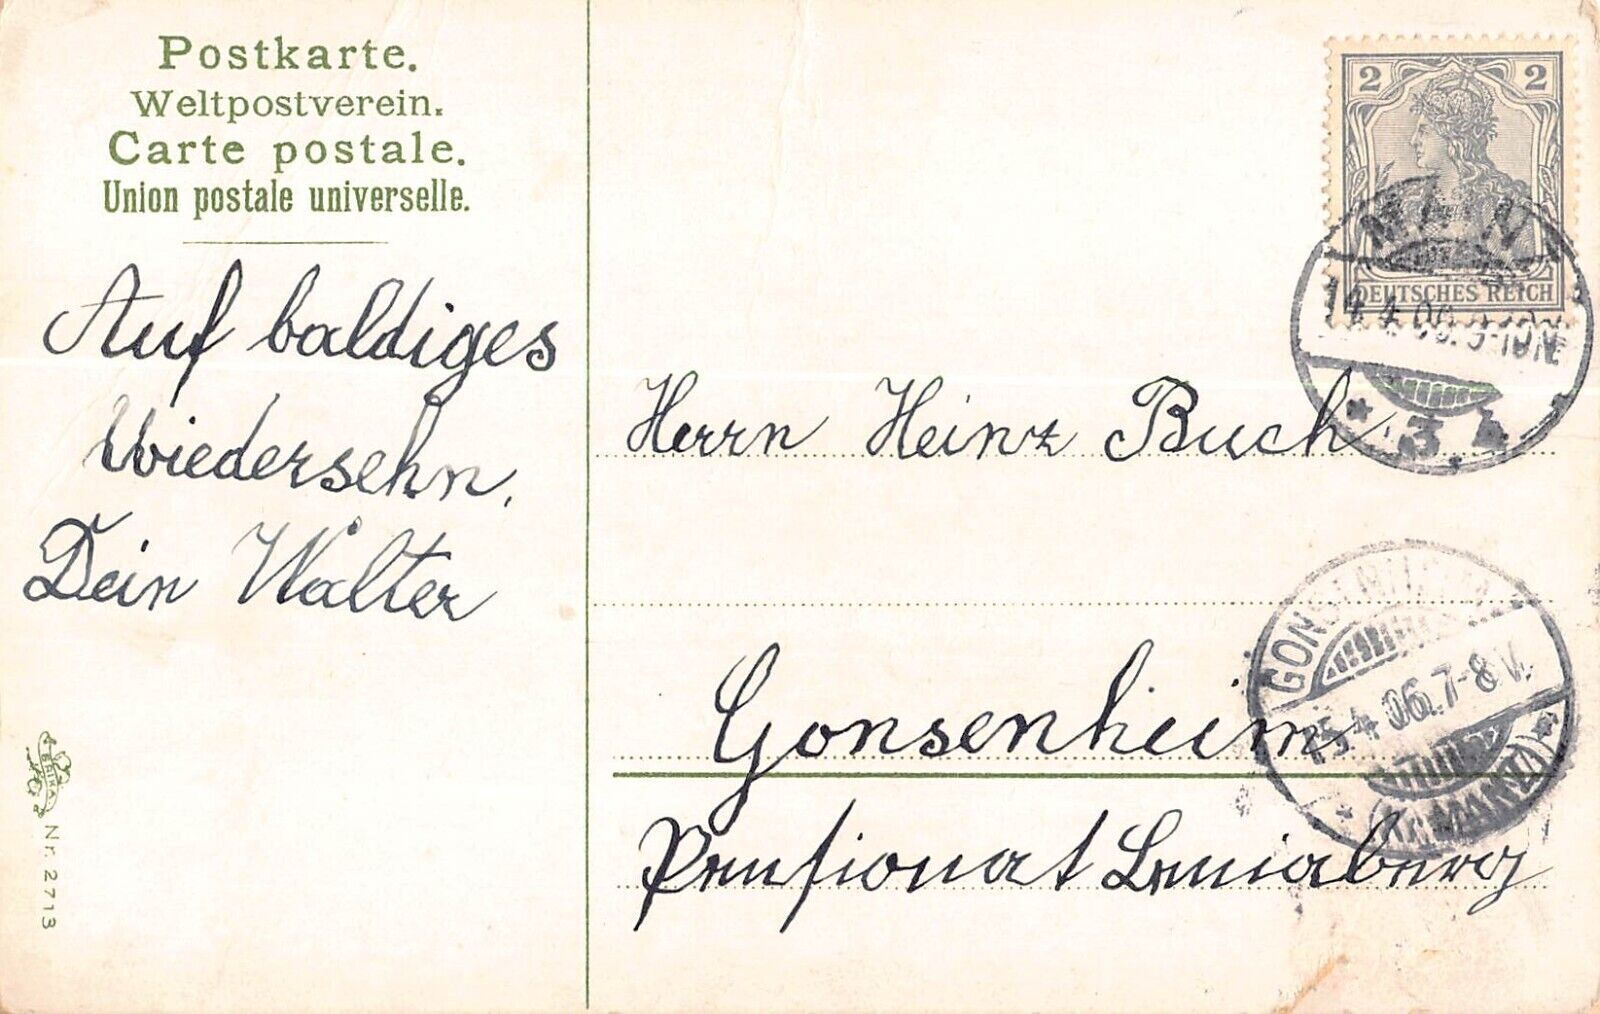 Postkarte.
Weltpostverein.
Carte postale.
Union postale universelle.
Auf baldiges
Wiedersehn.
Dein Walter
ERIKA
Nr. 2713
2 2
DEUTSCHES REICH
MAINZ
14.4.06. 9-10N.
* 3 *
Herrn Heinz Buch
Gonsenheim
Pensionat
GONSENHEIM
15.4.06. 7-8V.
* (Kr. MAINZ) *